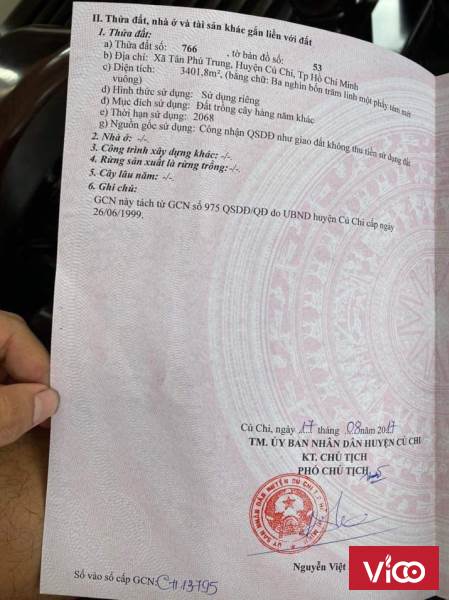 II. Thửa đất, nhà ở và tài sản khác gắn liền với đất
1. Thửa đất:
a) Thửa đất số: 766 , tờ bản đồ số: 53
b) Địa chỉ: Xã Tân Phú Trung, Huyện Củ Chi, Tp Hồ Chí Minh
c) Diện tích: 3401,8m², (bằng chữ: Ba nghìn bốn trăm linh một phẩy tám mét
vuông)
d) Hình thức sử dụng: Sử dụng riêng
đ) Mục đích sử dụng: Đất trồng cây hàng năm khác
e) Thời hạn sử dụng: 2068
g) Nguồn gốc sử dụng: Công nhận QSDĐ như giao đất không thu tiền sử dụng đất
2. Nhà ở: -/-
3. Công trình xây dựng khác: -/-.
4. Rừng sản xuất là rừng trồng:-/-.
5. Cây lâu năm: -/-.
6. Ghi chú:
GCN này tách từ GCN số 975 QSDĐ/QĐ do UBND huyện Củ Chi cấp ngày
26/06/1999.
Củ Chi, ngày 17 tháng 08 năm 2017
TM. ỦY BAN NHÂN DÂN HUYỆN CỦ CHI
KT. CHỦ TỊCH
PHÓ CHỦ TỊCH
Nguyễn Việt
Số vào sổ cấp GCN: CH 13795
Vico